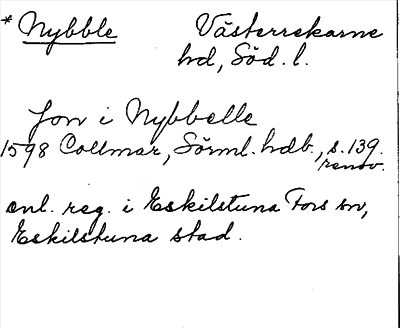 * Nybble Västerrekarne
hd, Söd. l.
Jon i Nybbelle
1598 Collmar, Sörml. hdb., s. 139.
renov.
enl. reg. i Eskilstuna Fors sn,
Eskilstuna stad.